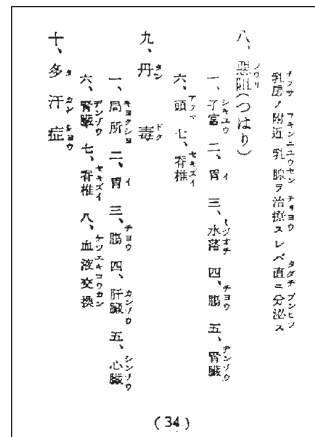 乳房ノ附近乳腺ヲ治療スレバ直ニ分泌ス
八、悪阻(つはり)
一、子宮 二、胃 三、水落 四、腸 五、腎臓
六、頭 七、脊椎
九、丹毒
一、局所 二、胃 三、腸 四、肝臓 五、心臓
六、腎臓 七、脊椎 八、血液交換
十、多汗症
(34)